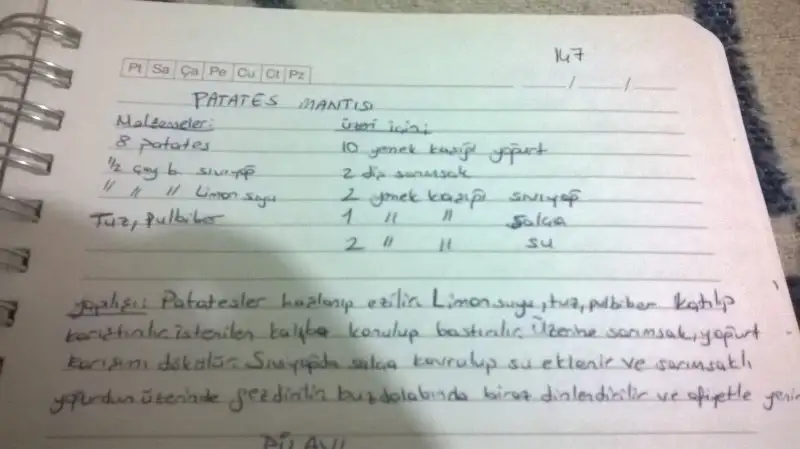 147
Pt Sa Ça Pe Cu Ct Pz
__/__/__
PATATES MANTISI
Malzemeler: üzeri için:
8 patates 10 yemek kaşığı yoğurt
1/2 çay b. sıvıyağ 2 diş sarımsak
" " " Limon suyu 2 yemek kaşığı sıvıyağ
Tuz, Pulbiber 1 " " Salça
2 " " su
yapılışı: Patatesler haşlanıp ezilir. Limon suyu, tuz, pulbiber katılıp
karıştırılır. istenilen kalıba konulup bastırılır. Üzerine sarımsak, yoğurt
karışımı dökülür. Sıvıyağda salça kavrulup su eklenir ve sarımsaklı
yoğurdun üzerinde gezdirilir buzdolabında biraz dinlendirilir ve afiyetle yenir